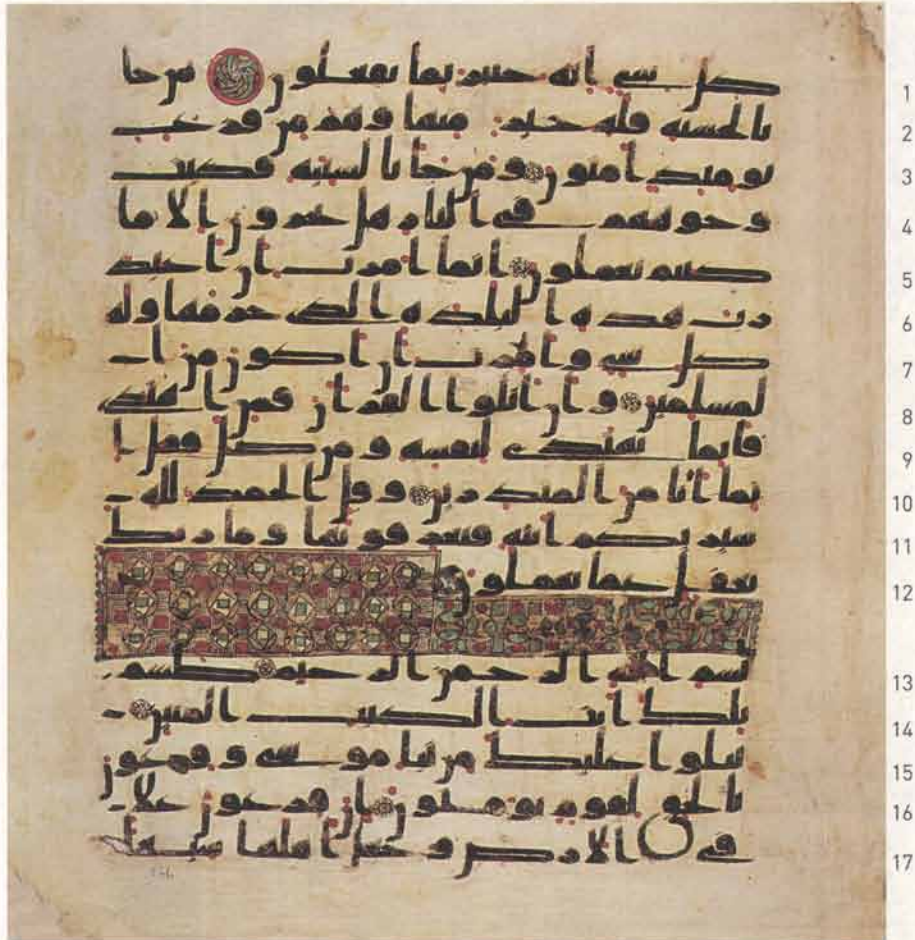 1 كل شي انه خبير بما تفعلون من جا
2 بالحسنه فله خير منها وهم من فزع
3 يوميذ امنون ومن جا بالسيه فكبت
4 وجوههم في النار هل تجزون الا ما
5 كنتم تعملون انما امرت ان اعبد
6 رب هذه البلده الذي حرمها وله
7 كل شي وامرت ان اكون من ا
8 لمسلمين وان اتلوا القران فمن اهتدى
9 فانما يهتدي لنفسه ومن ضل فقل ا
10 نما انا من المنذرين وقل الحمد لله
11 سيريكم ايته فتعرفونها وما ربك
12 بغفل عما تعملون
13 بسم الله الرحمن الرحيم طسم
14 تلك ايت الكتب المبين
15 نتلوا عليك من نبا موسى وفرعون
16 بالحق لقوم يومنون ان فرعون علا
17 في الارض وجعل اهلها شيعا